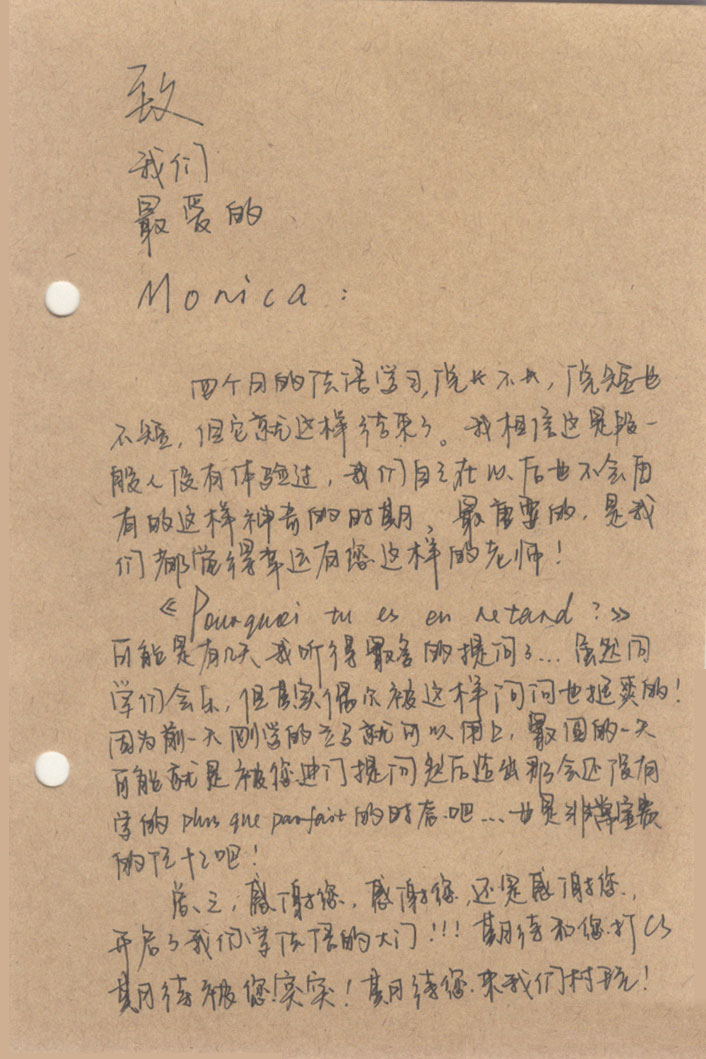 致
我们
最爱的
Monica:
四个月的法语学习,说长不长,说短也
不短,但它就这样结束了。我相信这是一
般人没有体验过,我们自己在以后也不会再
有的这样神奇的时期。最重要的,是我
们都觉得幸运有您这样的老师!
《Pourquoi tu es en retard?》
可能是有几天我听得最多的提问了...虽然同
学们会乐,但其实偶尔被这样问问也挺爽的!
因为前一天刚学的立马就可以用上,最囧的一天
可能就是被您进门提问然后造出那会还没有
学的 plus que parfait 的时态吧...也是非常宝贵
的吧!
总之,感谢您,感谢您,还是感谢您,
开启了我们学法语的大门!!!期待和您打CS
期待被您突突!期待您来我们村玩!